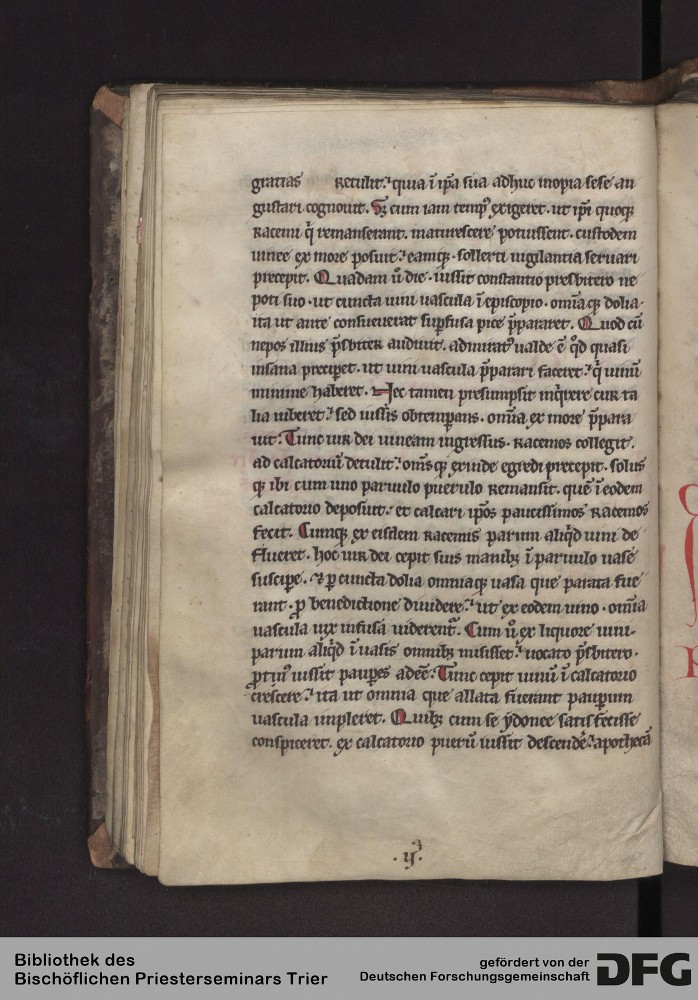 gratias Retulit. quia ī ip̄a sua adhuc inopia sese an
gustari cognouit. Sꝫ cum iam temp⁹ exigeret. ut ip̄i quoqꝫ
Racemi q̄ remanserant. maturescere potuissent. custodem
uinee ex more posuit. eamqꝫ. sollerti uigilantia seruari
precepit. Quadam ū die. iussit constantio presbitero ne
poti suo. ut cuncta uini uascula ī episcopio. omīaqꝫ dolia.
ita ut ante consueuerat suꝑfusa pice p̄pararet. Quod cū
nepos illius p̄sbiter audiuit. admirat⁹ ualde ē qd̓ quasi
insana preciperet. ut uini uascula p̄parari faceret. q̄ uinū
minime haberet. Nec tamen presumpsit inq̄rere cur ta
lia iuberet. sed iussis obtemꝑans. omīa ex more p̄para
uit. Tunc uir dei uineam ingressus. Racemos collegit.
ad calcatoriū detulit. om̄sqꝫ exinde egredi precepit. solus
qꝫ ibi cum uno paruulo puerulo Remansit. quē ī eodem
calcatorio deposuit. et calcari ip̄os paucissimos Racemos
fecit. Cumqꝫ ex eisdem Racemis parum aliq̄d uini de
flueret. hoc uir dei cepit suis manibꝫ ī paruulo uase
suscipe. ⁊ ꝑ cuncta dolia omniaqꝫ uasa que parata fue
rant. ꝓ benedictione diuidere. ut ex eodem uino. omīa
uascula uix infusa uiderent᷑. Cum ū ex liquore uini.
parum aliq̄d ī uasis omnibꝫ misisset. uocato p̄sbitero.
ꝓtin⁹ iussit pauꝑes adeē. Tunc cepit uinū ī calcatorio
crescere. ita ut omnia que allata fuerant pauꝑum
uascula impleret. Quibꝫ cum se ydonee satisfecisse
conspiceret. ex calcatorio puerū iussit descendē. apothecā
. ij.
Bibliothek des
Bischöflichen Priesterseminars Trier
gefördert von der
Deutschen Forschungsgemeinschaft
DFG